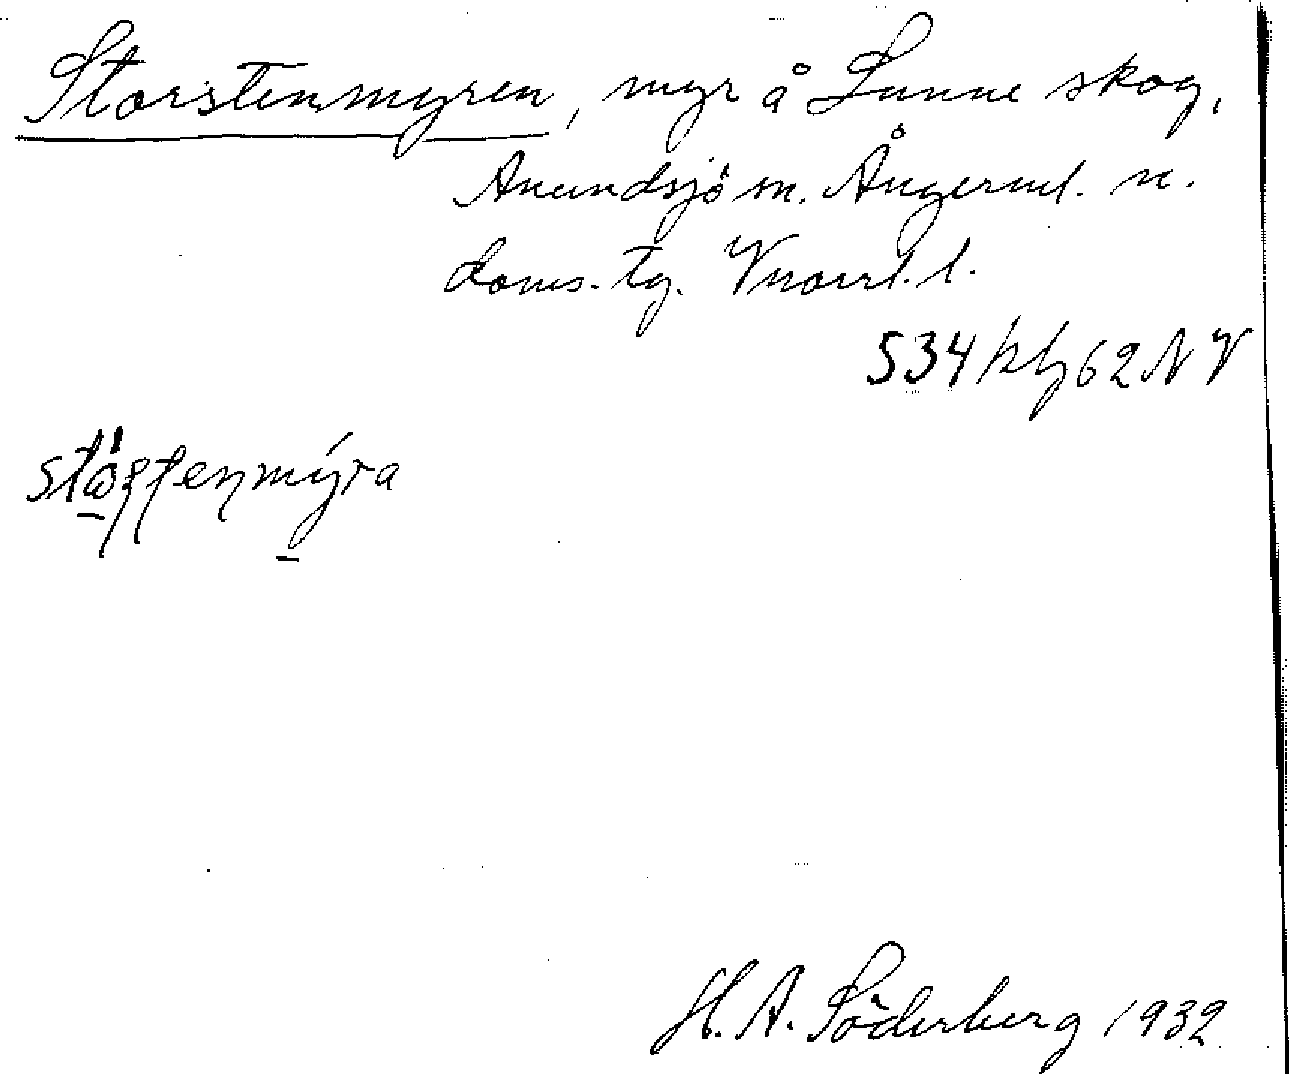 Storstenmyren, myr å Sunne skog,
Anundsjö sn. Ångerml. n.
doms. tg. Vnorrl. l.
534 kbl 62 NV
H. A. Söderberg 1932